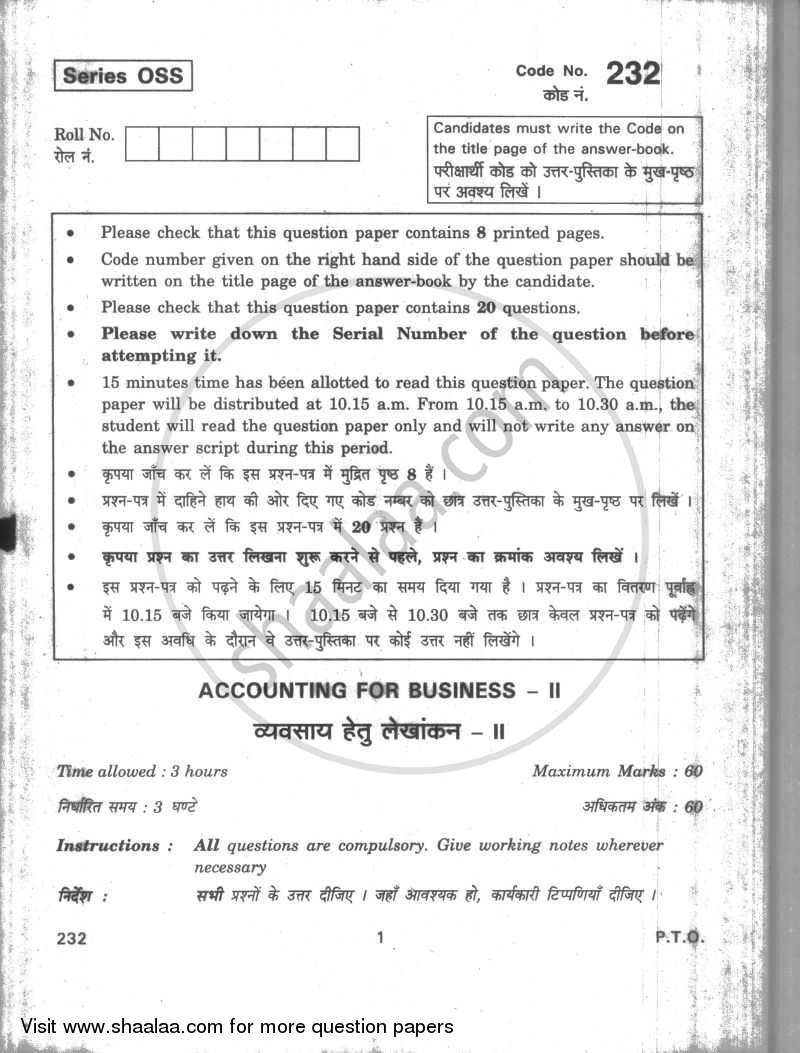 Series OSS
Code No. 232
कोड नं.
Roll No.
रोल नं.
Candidates must write the Code on
the title page of the answer-book.
परीक्षार्थी कोड को उत्तर-पुस्तिका के मुख-पृष्ठ
पर अवश्य लिखें ।
• Please check that this question paper contains 8 printed pages.
• Code number given on the right hand side of the question paper should be
written on the title page of the answer-book by the candidate.
• Please check that this question paper contains 20 questions.
• Please write down the Serial Number of the question before
attempting it.
• 15 minutes time has been allotted to read this question paper. The question
paper will be distributed at 10.15 a.m. From 10.15 a.m. to 10.30 a.m., the
student will read the question paper only and will not write any answer on
the answer script during this period.
• कृपया जाँच कर लें कि इस प्रश्न-पत्र में मुद्रित पृष्ठ 8 हैं ।
• प्रश्न-पत्र में दाहिने हाथ की ओर दिए गए कोड नम्बर को छात्र उत्तर-पुस्तिका के मुख-पृष्ठ पर लिखें ।
• कृपया जाँच कर लें कि इस प्रश्न-पत्र में 20 प्रश्न हैं ।
• कृपया प्रश्न का उत्तर लिखना शुरू करने से पहले, प्रश्न का क्रमांक अवश्य लिखें ।
• इस प्रश्न-पत्र को पढ़ने के लिए 15 मिनट का समय दिया गया है । प्रश्न-पत्र का वितरण पूर्वाह्न
में 10.15 बजे किया जायेगा । 10.15 बजे से 10.30 बजे तक छात्र केवल प्रश्न-पत्र को पढ़ेंगे
और इस अवधि के दौरान वे उत्तर-पुस्तिका पर कोई उत्तर नहीं लिखेंगे ।
shaalaa.com
ACCOUNTING FOR BUSINESS – II
व्यवसाय हेतु लेखांकन – II
Time allowed : 3 hours
Maximum Marks : 60
निर्धारित समय : 3 घण्टे
अधिकतम अंक : 60
Instructions : All questions are compulsory. Give working notes wherever
necessary
निर्देश : सभी प्रश्नों के उत्तर दीजिए । जहाँ आवश्यक हो, कार्यकारी टिप्पणियाँ दीजिए ।
232
1
P.T.O.
Visit www.shaalaa.com for more question papers